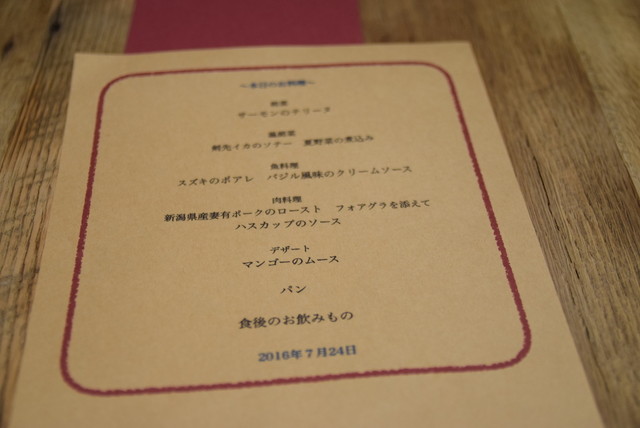 ～本日のお料理～
前菜
サーモンのテリーヌ
温前菜
剣先イカのソテー　夏野菜の煮込み
魚料理
スズキのポアレ　バジル風味のクリームソース
肉料理
新潟県産妻有ポークのロースト　フォアグラを添えて
ハスカップのソース
デザート
マンゴーのムース
パン
食後のお飲みもの
2016年７月24日